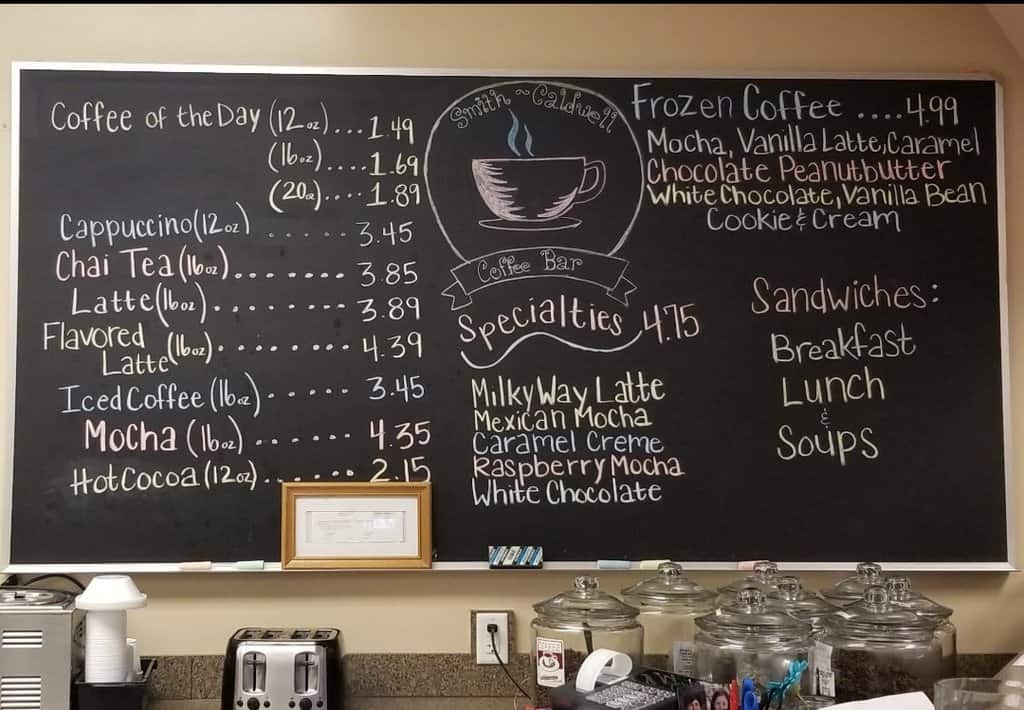 Coffee of the Day (12oz)...1.49
(16oz)....1.69
(20oz)....1.89
Cappuccino(12oz) ......3.45
Chai Tea(16oz).......3.85
Latte(16oz).......3.89
Flavored
Latte(16oz).......4.39
Iced Coffee (16oz)......3.45
Mocha (16oz)......4.35
Hot Cocoa (12oz).....2.15
Smith~Caldwell
Coffee Bar
Specialties 4.75
Milky Way Latte
Mexican Mocha
Caramel Creme
Raspberry Mocha
White Chocolate
Frozen Coffee ....4.99
Mocha, Vanilla Latte, Caramel
Chocolate Peanutbutter
White Chocolate, Vanilla Bean
Cookie & Cream
Sandwiches:
Breakfast
Lunch
&
Soups